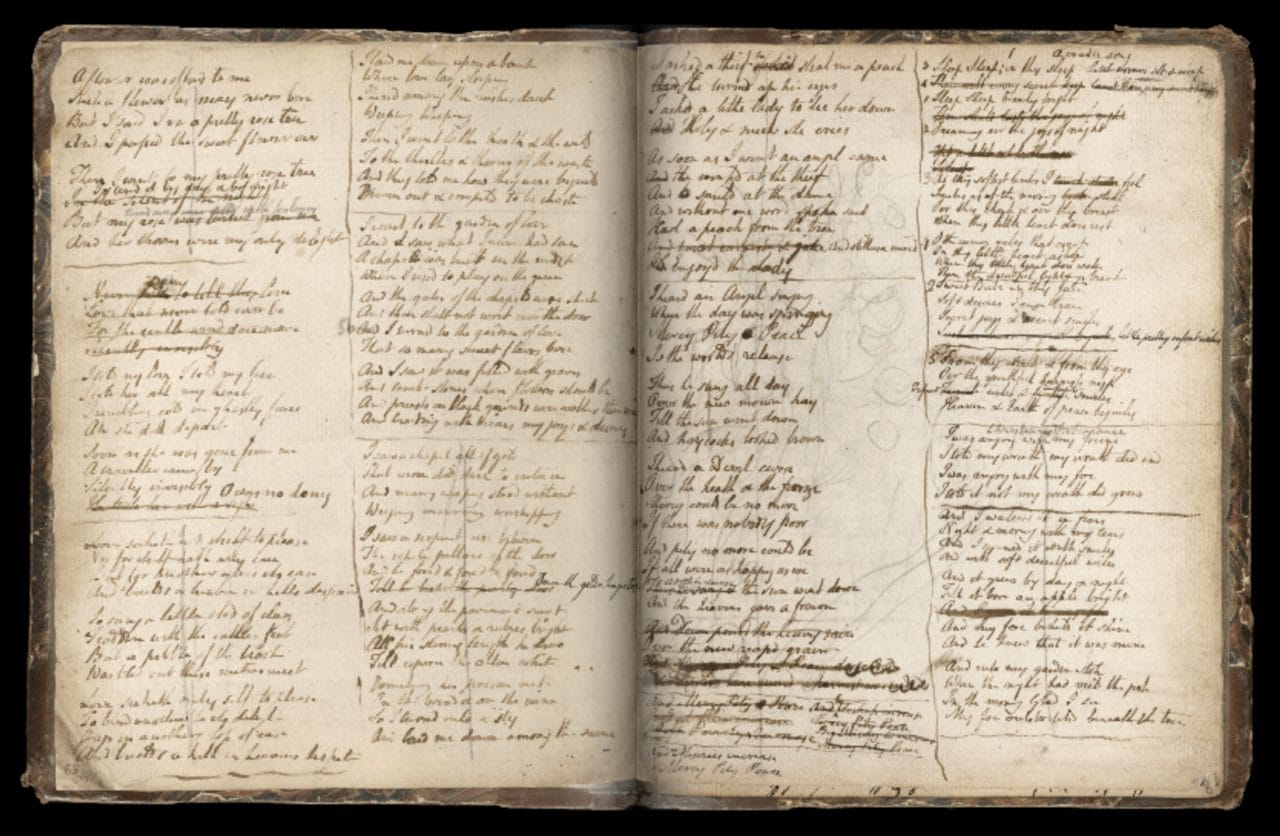 A flower was offerd to me
Such a flower as may never bore
But I said Ive a pretty rose tree
And I passed the sweet flower oer
Then I went to my pretty rose tree
To tend it by day & by night
In the silent of the night
But my rose was turned from me
And her thorns were my only delight
Never seek to tell thy love
Love that never told can be
For the gentle wind does move
Silently invisibly
I told my love I told my love
I told her all my heart
Trembling cold in ghastly fears
Ah she doth depart
Soon as she was gone from me
A traveller came by
Silently invisibly O was no deny
He took her with a sigh
Love seeketh not itself to please
Nor for itself hath any care
But for another gives its ease
And builds a heaven in hells despair
So sung a little clod of clay
Trodden with the cattles feet
But a pebble of the brook
Warbled out these metres meet
Love seeketh only self to please
To bind another to its delight
Joys in anothers loss of ease
And builds a hell in heavens despite
65
I laid me down upon a bank
Where love lay sleeping
I heard among the rushes dank
Weeping Weeping
Then I went to the heath & the wild
To the thistles & thorns of the waste
And they told me how they were beguild
Driven out & compeld to be chaste
I went to the garden of love
And I saw what I never had seen
A chapel was built in the midst
Where I used to play on the green
And the gates of the chapel were shut
And thou shalt not writ over the door
So I turnd to the garden of love
That so many sweet flowers bore
And I saw it was filled with graves
And tomb-stones where flowers should be
And priests in black gounds were walking their rounds
And binding with briars my joys & desires
I saw a chapel all of gold
That none did dare to enter in
And many weeping stood without
Weeping mourning worshipping
I saw a serpent rise between
The white pillars of the door
And he forcd & forcd & forcd
Down the golden hinges tore
Till he broke the pearly door
And along the pavement sweet
Set with pearls & rubies bright
All his slimy length he drew
Till upon the altar white
Vomiting his poison out
On the bread & on the wine
So I turnd into a sty
And laid me down among the swine
I askd a thief to steal me a peach
He turned up his eyes
I askd a lithe lady to lie her down
Holy & meek she cries
As soon as I went an angel came
And he winkd at the thief
And smild at the dame
And without one word spoke said
Had a peach from the tree
And still as a maid
Enjoyd the lady
I heard an Angel singing
When the day was springing
Mercy Pity & Peace
Is the worlds release
Thus he sung all day
Over the new mown hay
Till the sun went down
And haycocks looked brown
I heard a Devil curse
Over the heath & the furze
Mercy could be no more
If there was nobody poor
And pity no more could be
If all were as happy as we
At his curse the sun went down
And the heavens gave a frown
And Down pourd the heavy rain
Over the new reapd grain
And Miseries increase
Mercy Pity Peace
A cradle song
Sleep Sleep; in thy sleep
Sleep Sleep beauty bright
Dreaming oer the joys of night
As thy softest limbs I feel
Smiles as of the morning steal
Oer thy cheek & oer thy breast
Where thy little heart does rest
O the cunning wiles that creep
In thy little heart asleep
When thy little heart does wake
Then the dreadful lightnings break
Sweet Babe in thy face
Soft desires I can trace
Secret joys & secret smiles
Little pretty infant wiles
From thy cheek & from thy eye
Oer the youthful harvests nigh
Infant wiles & infant smiles
Heaven & Earth of peace beguiles
Christian Forbearance
I was angry with my friend
I told my wrath my wrath did end
I was angry with my foe
I told it not my wrath did grow
And I waterd it in fears
Night & morning with my tears
And I sunned it with smiles
And with soft deceitful wiles
And it grew by day & night
Till it bore an apple bright
And my foe beheld it shine
And he knew that it was mine
And into my garden stole
When the night had veild the pole
In the morning Glad I see
My foe outstretchd beneath the tree